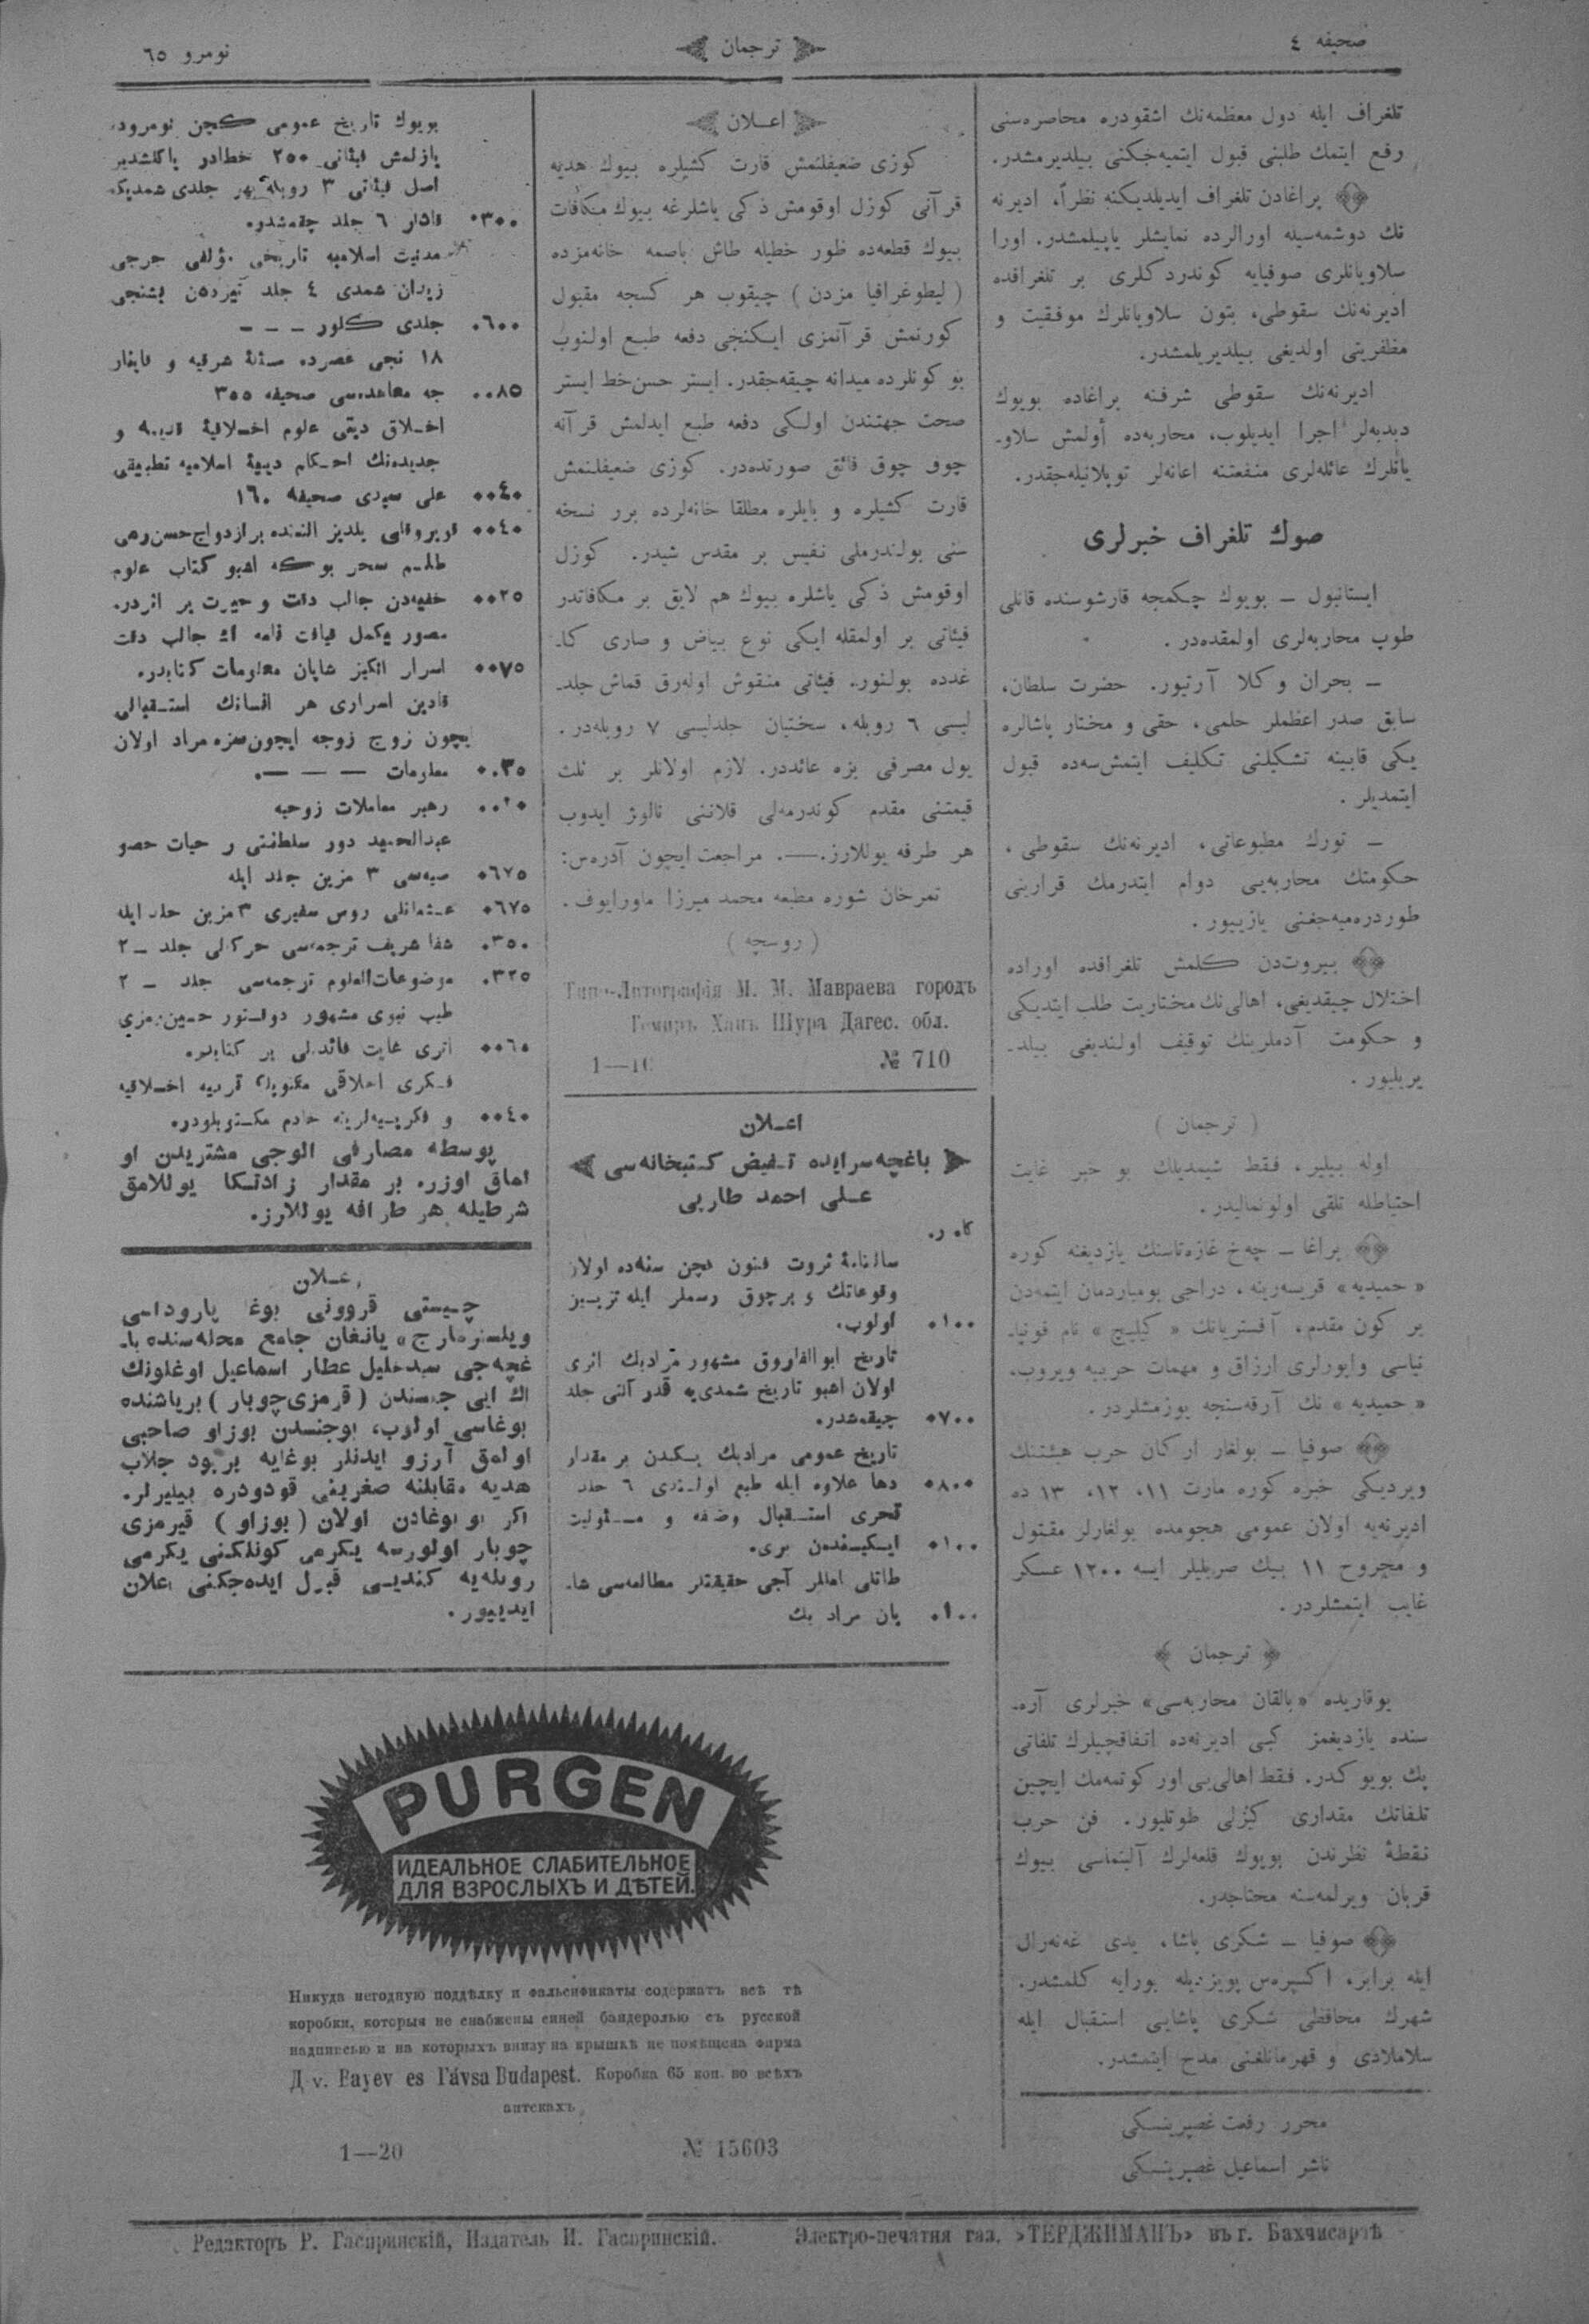 صحيفه ٤
ترجمان
نومرو ٦٥
تلغراف ايله دول معظمه‌نك اشقودره محاصره‌سنى
رفع ايتمك طلبنى قبول ايتميه‌جكنى بيلديرمشدر.
براغادن تلغراف ايديلديكنه نظراً، ادرنه
نك دوشمه‌سيله اورالرده نمايشلر ياپيلمشدر. اورا
سلاويانلرى صوفيايه كوندردكلرى بر تلغرافده
ادرنه‌نك سقوطى، بتون سلاويانلرك موفقيت و
مظفريتى اولديغى بيلديريلمشدر.
ادرنه‌نك سقوطى شرفنه براغاده بويوك
دبدبه‌لر اجرا ايديلوب، محاربه‌ده أولمش سلاو-
يانلرك عائله‌لرى منفعتنه اعانه‌لر توپلانيله‌جقدر.
صوك تلغراف خبرلرى
ايستانبول ــ بويوك چكمجه قارشوسنده قانلى
طوپ محاربه‌لرى اولمقده‌در .
ــ بحران وكلا آرتيور. حضرت سلطان،
سابق صدر اعظملر حلمى، حقى و مختار پاشالره
يكى قابينه تشكيلنى تكليف ايتمش‌سه‌ده قبول
ايتمديلر .
ــ تورك مطبوعاتى، ادرنه‌نك سقوطى،
حكومتك محاربه‌يى دوام ايتدرمك قرارينى
طوردره‌ميه‌جغنى يازييور .
بيروت‌دن كلمش تلغرافده اوراده
اختلال چيقديغى، اهالى‌نك مختاريت طلب ايتديكى
و حكومت آدملرينك توقيف اولنديغى بيلد-
يريليور .
( ترجمان )
اوله بيلير، فقط شيمديلك بو خبر غايت
احتياطله تلقى اولونماليدر.
براغا ــ چه‌خ غازه‌تاسنك يازديغنه كوره
« حميديه » قريسه‌رينه، دراجى بومباردمان ايتمه‌دن
بر كون مقدم، آفستريانك « كيليچ » نام قونپا-
نياسى واپورلرى ارزاق و مهمات حربيه ويروب،
« حميديه » نك آرقه‌سنجه يوزمشلردر.
صوفيا ــ بولغار اركان حرب هيئتنك
ويرديكى خبره كوره مارت ١١، ١٢، ١٣ ده
ادرنه‌يه اولان عمومى هجومده بولغارلر مقتول
و مجروح ١١ بيك صربليلر ايسه ١٢٠٠ عسكر
غايب ايتمشلردر.
ترجمان
يوقاريده «بالقان محاربه‌سى» خبرلرى آره-
سنده يازديغمز كبى ادرنه‌ده اتفاقچيلرك تلفاتى
پك بويوكدر. فقط اهالى‌يى اوركوتمه‌مك ايچين
تلفاتك مقدارى كيزلى طوتليور. فن حرب
نقطهٔ نظرندن بويوك قلعه‌لرك آلينماسى بيوك
قربان ويرلمه‌سنه محتاجدر.
صوفيا ــ شكرى پاشا، يدى غه‌نه‌رال
ايله برابر، اكسپره‌س پويزديله بورايه كلمشدر.
شهرك محافظى شكرى پاشايى استقبال ايله
سلاملادى و قهرمانلغنى مدح ايتمشدر.
محرر رفعت غصپرينسكى
ناشر اسماعيل غصپرينسكى
اعلان
كوزى ضعيفلنمش قارت كشيلره بيوك هديه
قرآنى كوزل اوقومش ذكى ياشلرغه بيوك مكافات
بيوك قطعه‌ده ظور خطيله طاش باصمه خانه‌مزده
( ليطوغرافيا مزدن ) چيقوب هر كسجه مقبول
كورنمش قرآنمزى ايكنجى دفعه طبع اولنوب
بو كونلرده ميدانه چيقه‌جقدر. ايستر حسن خط ايستر
صحت جهتندن اولكى دفعه طبع ايدلمش قرآنه
چوق چوق فائق صورتده‌در. كوزى ضعيفلنمش
قارت كشيلره و بايلره مطلقا خانه‌لرده برر نسخه
سنى بولندرملى نفيس بر مقدس شيدر. كوزل
اوقومش ذكى ياشلره بيوك هم لايق بر مكافاتدر
فيئاتى بر اولمقله ايكى نوع بياض و صارى كا-
غدده بولنور. فيئاتى منقوش اوله‌رق قماش جلد-
ليسى ٦ روبله، سختيان جلدليسى ٧ روبله‌در.
يول مصرفى بزه عائددر. لازم اولانلر بر ثلث
قيمتنى مقدم كوندرمه‌لى قلاننى نالوژ ايدوب
هر طرفه يوللارز.ــ. مراجعت ايچون آدره‌س:
تمرخان شوره مطبعه محمد ميرزا ماورايوف.
( روسچه )
Типо-Литографія М. М. Мавраева городъ
Темиръ Ханъ Шура Дагес. обл.
1—10 № 710
اعلان
باغچه‌سرايده تفيض كتبخانه‌سى
على احمد طارپى
سالنامهٔ ثروت فنون كچن سنه‌ده اولان
وقوعاتك و برچوق رسملر ايله تزيين
٠١٠٠ اولوب.
تاريخ ابوالفاروق مشهور مرادبك اثرى
اولان اشبو تاريخ شمدى‌يه قدر آلتى جلد
٠٧٠٠ چيقمشدر.
تاريخ عمومى مرادبك يكيدن بر مقدار
٠٨٠٠ دها علاوه ايله طبع اولندى ٦ جلد
تحرى استقبال وضفه و مسئوليت
٠١٠٠ ايكيسندن برى.
طاتلى املالر آجى حقيقتلر مطالعه‌سى شا-
٠١٠٠ يان مراد بك
بويوك تاريخ عمومى كچن نومروده
يازلمش فيئاتى ٢٥٠ خطادر ياكلشدير
اصل فيئاتى ٣ روبله بهر جلدى شمديكه
٠٣٠٠ قادار ٦ جلد چقمشدر.
مدنيت اسلاميه تاريخى مؤلفى جرجى
زيدان شمدى ٤ جلد تيزدەن بشنجى
٠٦٠٠ جلدى كلور ــ ــ ــ
١٨ نجى عصرده مسئلهٔ شرقيه و قاينار
٠٠٨٥ جه معاهده‌سى صحيفه ٣٥٥
اخلاق دينى علوم اخلاقيهٔ قديمه و
جديده‌نك احكام دينيهٔ اسلاميه تطبيقى
٠٠٤٠ على سيدى صحيفه ١٦٠
٠٠٤٠ يلديز التنده بر ازدواج حسن رمى
طلسم سحر بوكه اشبو كتاب علوم
٠٠٢٥ خفيه‌دن جالب دقت و حيرت بر اثردر.
مصور مكمل قيافت نامه اك جالب دقت
٠٠٧٥ اسرار انكيز شايان معلومات كتابدر.
قادين اسرارى هر انسانك استقبالى
ايچون زوج زوجه ايچون مراد اولان
٠٠٣٥ معلومات — — —.
٠٠٢٠ رهبر معاملات زوجيه
عبدالحميد دور سلطنتى و حيات خصو
٠٦٧٥ صيه‌سى ٣ مزين جلد ايله
٠٦٧٥ عثمانلى روس سفرى ٣ مزين جلد ايله
٠٣٥٠ شفا شريف ترجمه‌سى حركه‌لى جلد ــ ٢
٠٣٢٥ موضوعات‌العلوم ترجمه‌سى جلد ــ ٢
طب نبوى مشهور دوقتور حسين رمزى
٠٠٦٥ اثرى غايت فائده‌لى بر كتابدر.
فكرى اخلاقى مكتوبلر تربيه اخلاقيه
٠٠٤٠ و فكريه‌لرينه خادم مكتوبلردر.
پوسطه مصارفى الوجى مشتريدن او
لماق اوزره بر مقدار زادتكا يوللامق
شرطيله هر طرافه يوللارز.
اعلان
چيستى قرووني بوغا پاروداسى
ويلسترمارج» يانغان جامع محله‌سنده با-
غچه‌جى سيدخليل عطار اسماعيل اوغلونك
اك ايى جنسندن ( قرمزى چوبار ) بر ياشنده
بوغاسى اولوب، بوجنسدن بوزاو صاحبى
اولمق آرزو ايدنلر بوغايه بربود جلاب
هديه مقابلنه صغرينى قودودره بيليرلر.
اكر بو بوغادن اولان ( بوزاو ) قيرمزى
چوبار اولورسه يكرمى كونلكنى يكرمى
روبله‌يه كنديسى قبول ايده‌جكنى اعلان
ايدييور.
PURGEN
ИДЕАЛЬНОЕ СЛАБИТЕЛЬНОЕ
ДЛЯ ВЗРОСЛЫХЪ И ДѢТЕЙ.
Никуда негодную поддѣлку и фальсификаты содержатъ всѣ тѣ
коробки, которыя не снабжены синей бандеролью съ русской
надписью и на которыхъ внизу на крышкѣ не помѣщена фирма
Д v. Bayev es Távsa Budapest. Коробка 65 коп. во всѣхъ
аптекахъ
1—20 № 15603
Редакторъ Р. Гаспринскій, Издатель И. Гаспринскій. Электро-печатня газ. »ТЕРДЖИМАНЪ» въ г. Бахчисараѣ